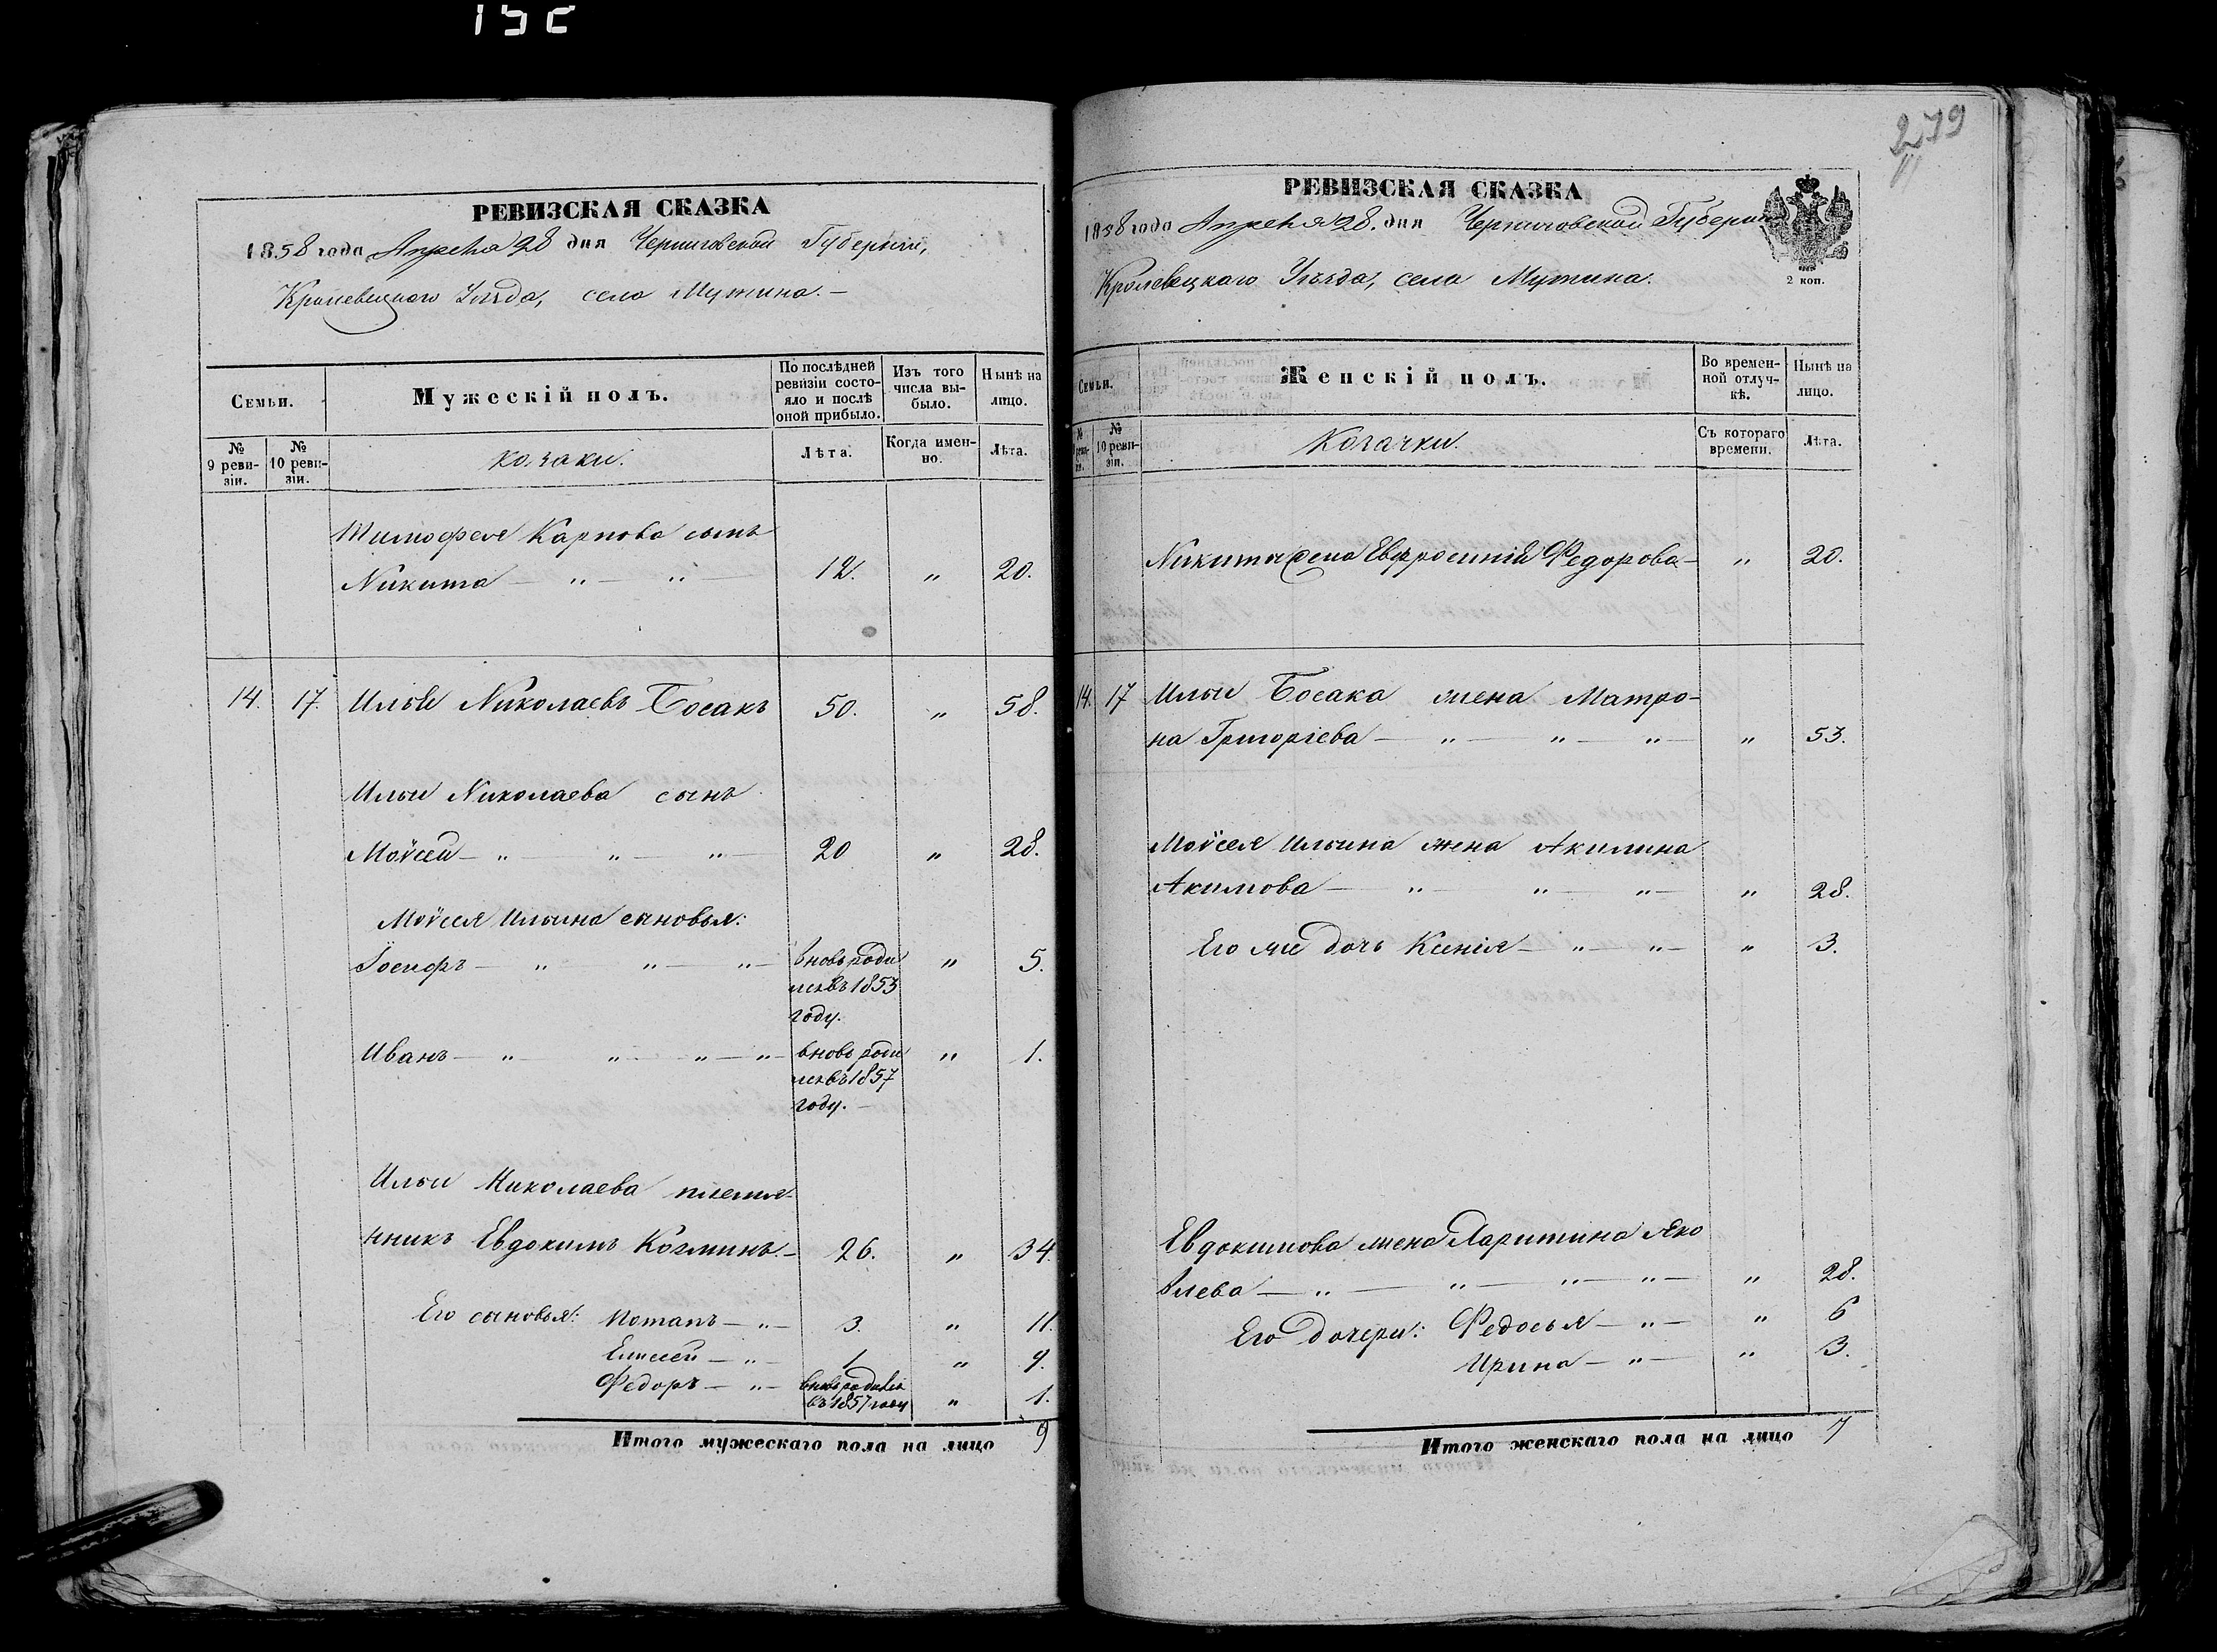 152
РЕВИЗСКАЯ СКАЗКА
1858 года Апреля 28 дня Черниговской Губернии,
Кролевецкаго Уѣзда, села Мутина.—
Семьи.
Мужескій полъ.
По послѣдней ревизіи состояло и послѣ оной прибыло.
Изъ того числа выбыло.
Нынѣ на лицо.
№ 9 ревизіи.
№ 10 ревизіи.
Козаки.
Лѣта.
Когда именно.
Лѣта.
Тимофея Карпова сынъ
Никита — „ — „ 12. „ 20.
14. 17. Илья Николаевъ Босакъ 50. „ 58.
Ильи Николаева сынъ
Моѵсей — „ „ — „ 20 „ 28.
Моѵсея Ильина сыновья:
Іосифъ — „ „ — „ — вновь роди „ 5.
лся въ 1853
году.
Иванъ — „ — „ — „ — „ — вновь роди „ 1.
лся въ 1857
году. —
Ильи Николаева племя-
нникъ Евдокимъ Козминъ.— 26. „ 34.
Его сыновья: Потапъ — „ — 3. „ 11.
Елисей — „ — 1 „ 9.
Федоръ — „ — вновь родился
въ 1857 году „ 1.
Итого мужескаго пола на лицо 9
279
РЕВИЗСКАЯ СКАЗКА
1858 года Апреля 28. дня Черниговской Губернии
Кролевецкаго Уѣзда, села Мутина.
2 коп.
Семьи.
Женскій полъ.
Во временной отлучкѣ.
Нынѣ на лицо.
№ 9 ревизіи.
№ 10 ревизіи.
Козачки.
Съ котораго времени.
Лѣта.
Никиты жена Евфросинія Федорова — „ 20.
14. 17 Ильи Босака жена Матро-
на Григоріева — „ — „ — „ — „ 53.
Моѵсея Ильина жена Акилина
Акимова — „ — „ — „ — „ 28.
Его же дочь Ксенія — „ — „ — „ 3.
Евдокимова жена Харитина Яко
влева — „ — „ — „ — „ — „ 28.
Его дочери: Федосья — „ — „ 6
Ирина — „ — „ 3.
Итого женскаго пола на лицо 7